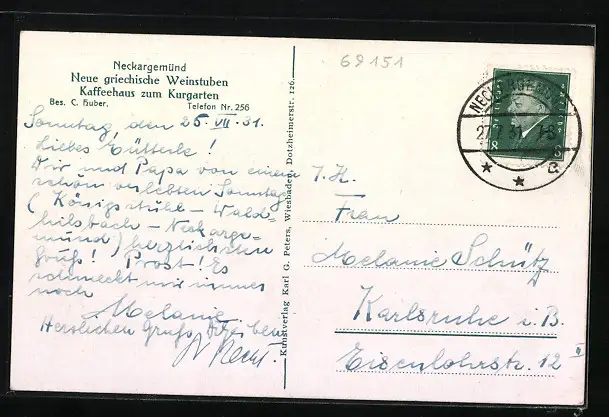 Neckargemünd
Neue griechische Weinstuben
Kaffeehaus zum Kurgarten
Bes. C. Huber. Telefon Nr. 256
Sonntag, den 25. VII. 31.
Liebes Mutterle!
Dir und Papa von einem
schön verlebten Sonntag
(Königstuhl – Wald-
hilsbach – Neckarge-
münd) herzlichsten
Gruß! Prost! Es
schmeckt mir immer
noch
Melanie.
Herzlichen Gruß
Kunstverlag Karl G. Peters, Wiesbaden, Dotzheimerstr. 126.
69151
NECKARGEMÜND
27.7.31. 7-8
8 8
I. H.
Frau
Melanie Schütz
Karlsruhe i. B.
Eisenlohrstr. 12 II